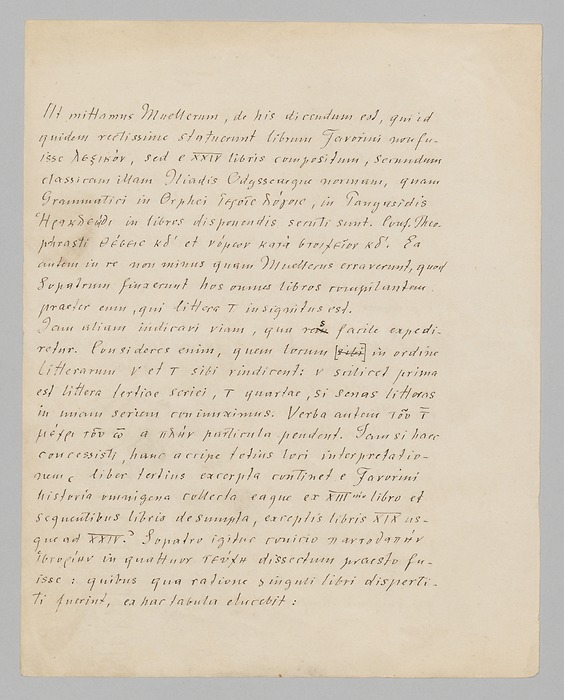 Ut mittamus Muellerum, de his dicendum est, qui id
quidem rectissime statuerunt librum Favorini nonfu-
isse λεξικόν, sed e XXIV libris compositum, secundum
classicam illam Iliadis Odysseaeque normam, quam
Grammatici in Orphei ἱεροῖς λόγοις, in Panyasidis
Ἡρακλεάδι in libros disponendis secuti sunt. Conf. Theo-
phrasti θέσεις κδ' et νόμων κατὰ στοιχεῖον κδ'. Ea
autem in re non minus quam Muellerus erraverunt, quod
Sopatrum finxerunt hos omnes libros compilantem
praeter eum, qui littera T insignitus est.
Iam aliam indicavi viam, qua res facile expedi-
retur. Consideres enim, quem locum [sibi] in ordine
litterarum ν et τ sibi vindicent: ν scilicet prima
est littera tertiae seriei, τ quartae, si senas litteras
in unam seriem coniunximus. Verba autem τοῦ τ
μέχρι τοῦ ω a πλήν particula pendent. Iam si haec
concessisti, hanc accipe totius loci interpretatio-
nem: liber tertius excerpta continet e Favorini
historia omnigena collecta eaque ex XIIImo libro et
sequentibus libris desumpta, exceptis libris XIX us-
que ad XXIV. Sopatro igitur conicio παντοδαπήν
ἱστορίαν in quattuor τεύχη dissectam praesto fu-
isse: quibus qua ratione singuli libri disperti-
ti fuerint, ea hac tabula elucebit: